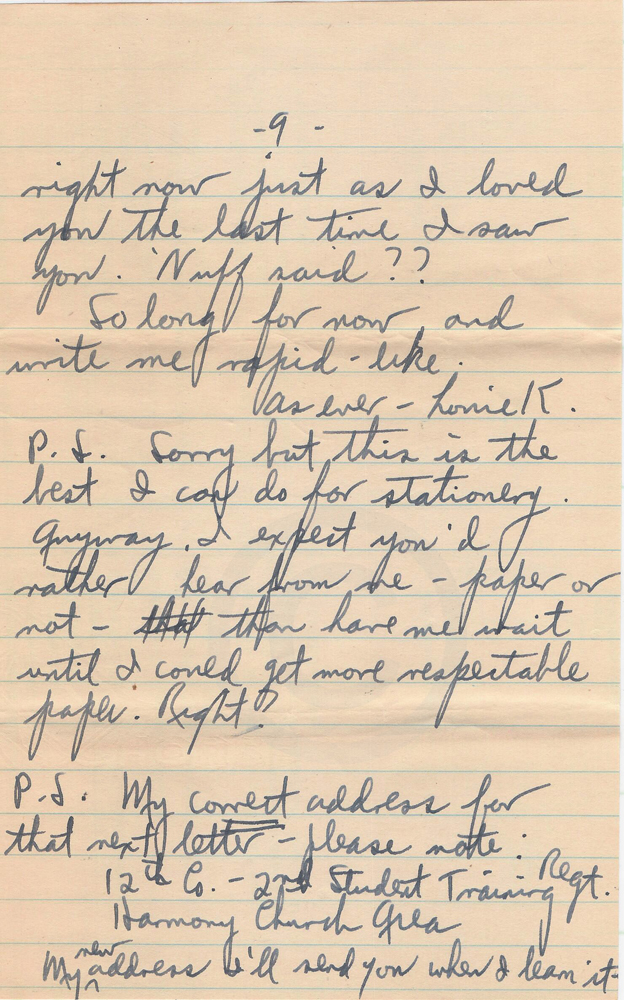 -9-
right now just as I loved
you the last time I saw
you. 'Nuff said ??
So long for now, and
write me rapid-like.
As ever - Lonie K.
P.S. Sorry but this is the
best I can do for stationery.
Anyway, I expect you'd
rather hear from me - paper or
not - that than have me wait
until I could get more respectable
paper. Right?
P.S. My correct address for
that next letter - please note:
12th Co. - 2nd Student Training Regt.
Harmony Church Area
My new address I'll send you when I learn it-